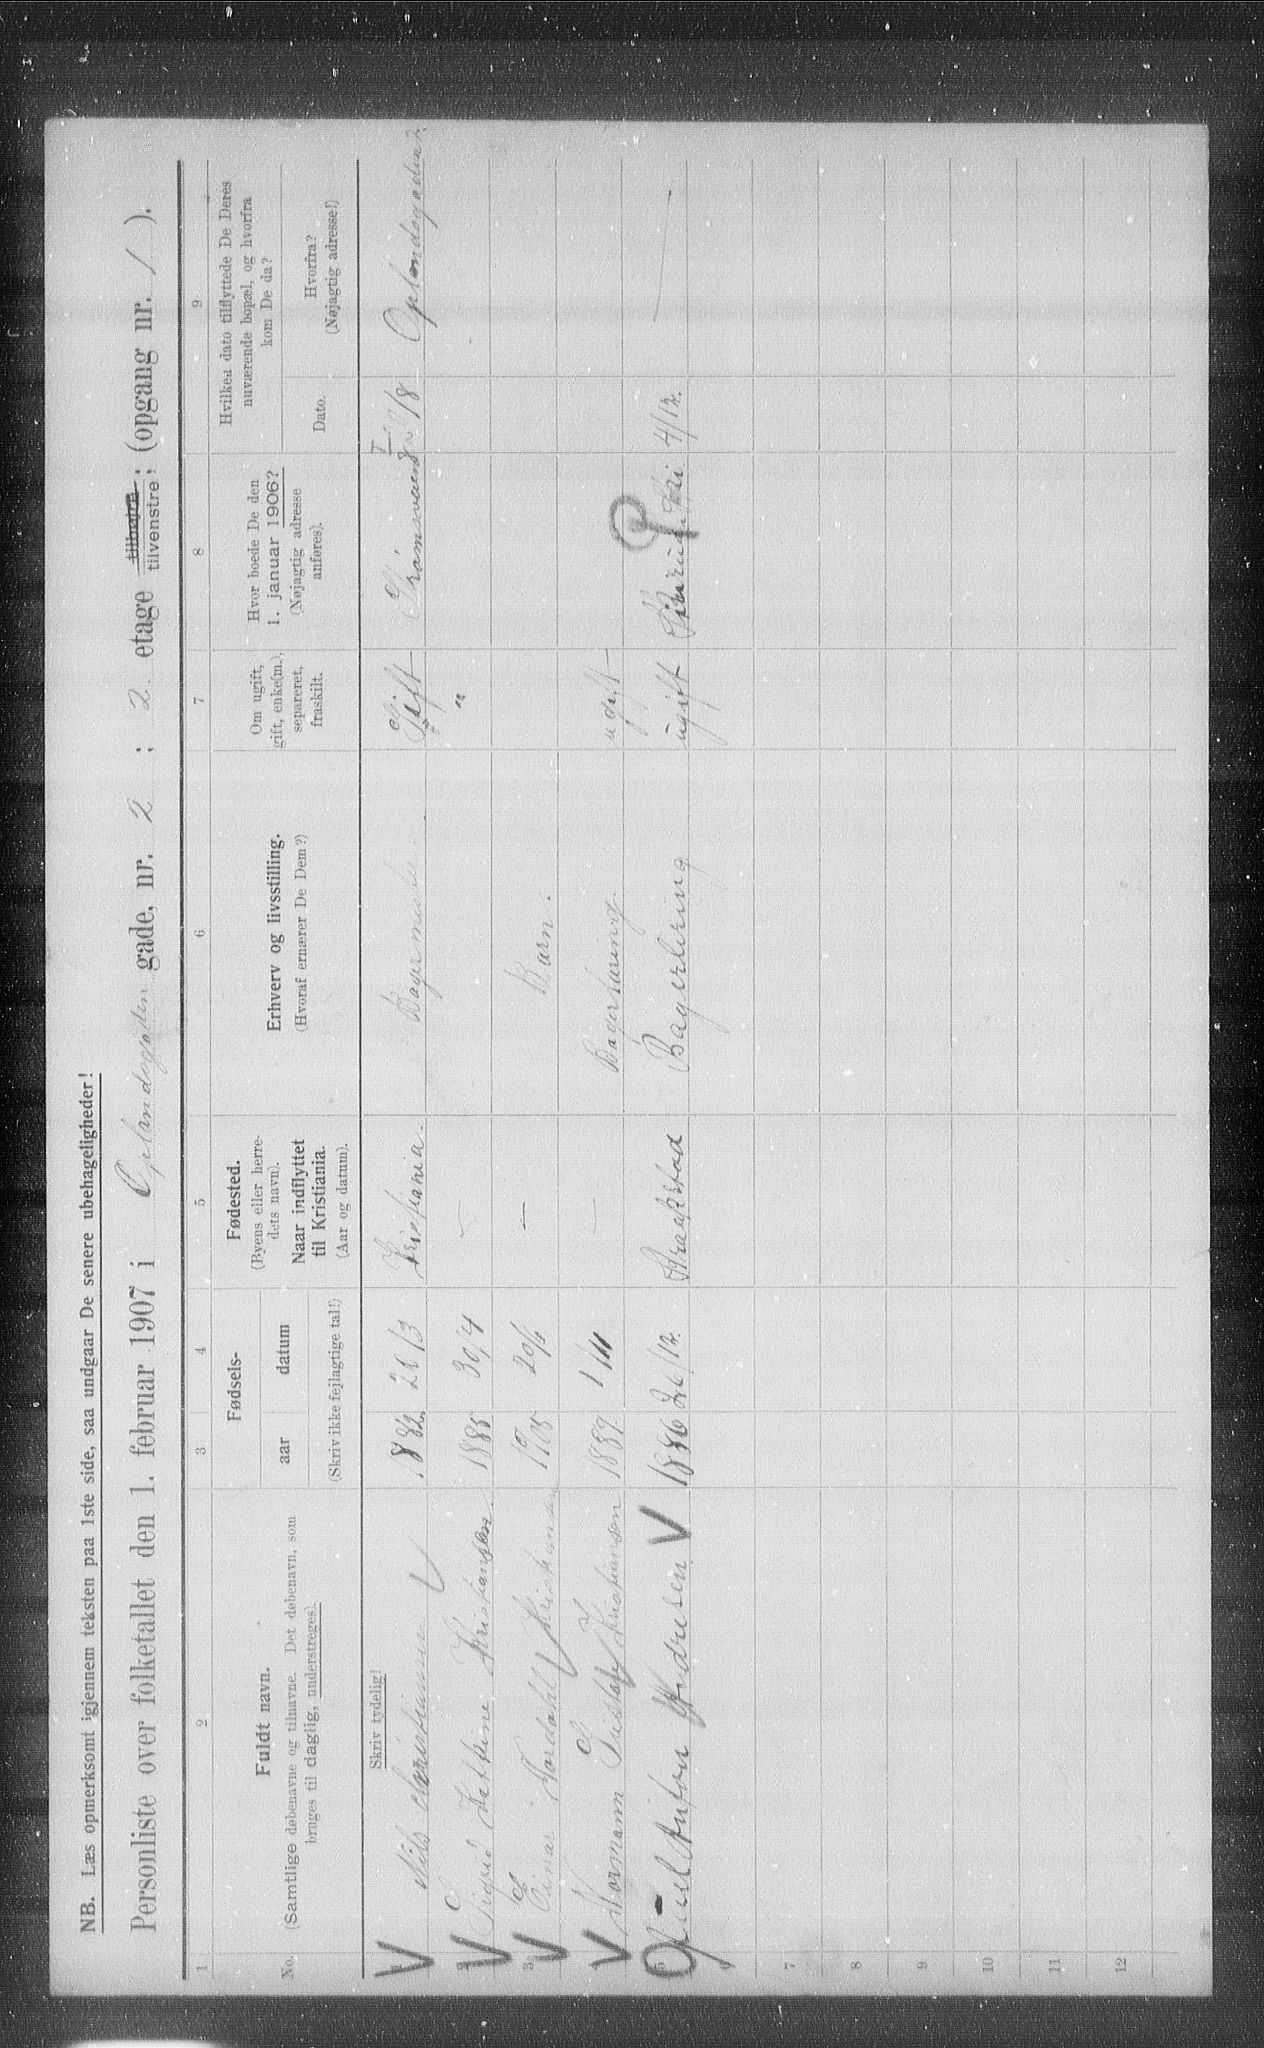 NB. Læs opmerksomt igjennem teksten paa 1ste side, saa undgaar De senere ubehageligheder!
Personliste over folketallet den 1. februar 1907 i Oplandsgaden gade, nr. 2 ; 2 etage tilhøjre tilvenstre ; (opgang nr. 1 ).
1 2 3 4 5 6 7 8 9
No.
Fuldt navn.
(Samtlige døbenavne og tilnavne. Det døbenavn, som
bruges til daglig, understreges).
Fødsels-
aar datum
(Skriv ikke fejlagtige tal!)
Fødested.
(Byens eller herre-
dets navn).
Naar indflyttet
til Kristiania.
(Aar og datum).
Erhverv og livsstilling.
(Hvoraf ernærer De Dem?)
Om ugift,
gift, enke(m.),
separeret,
fraskilt.
Hvor boede De den
1. januar 1906?
(Nøjagtig adresse
anføres).
Hvilken dato tilflyttede De Deres
nuværende bopæl, og hvorfra
kom De da?
Dato.
Hvorfra?
(Nøjagtig adresse!)
Skriv tydelig!
1 Nils Christiansen 1882 21/3 Kristiania. Bagermester. Gift 18 Oplandsgaden 2
2 Sigrid Kristiansen 1885 30/4 — "
3 Einar Nordahl Kristiansen 1905 20/ — Barn.
4 Normann Gustav Kristiansen 1889 1/11 — Bagerlæring ugift
5 Anton Andresen 1886 26/12 Kraakstad Bagerlæring ugift Ski 4/12 —
6
7
8
9
10
11
12